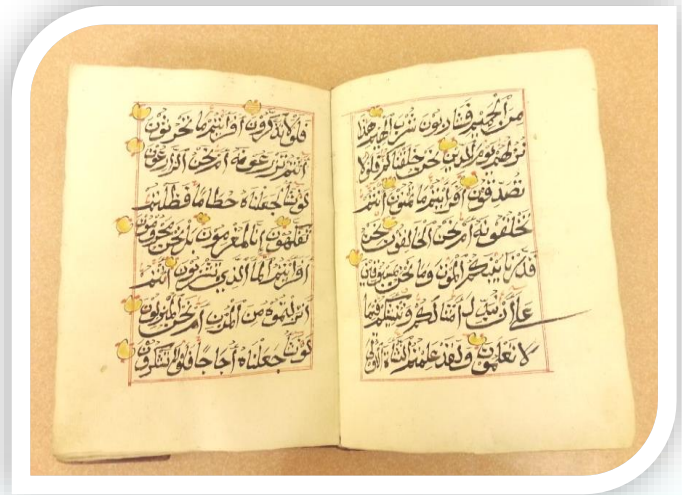 من الحميم فشاربون شرب الهيم هذا
نزلهم يوم الدين نحن خلقناكم فلولا
تصدقون أفرأيتم ما تمنون أأنتم
تخلقونه أم نحن الخالقون نحن
قدرنا بينكم الموت وما نحن بمسبوقين
على أن نبدل أمثالكم وننشئكم فيما
لا تعلمون ولقد علمتم النشأة الأولى
فلولا تذكرون أفرأيتم ما تحرثون
أأنتم تزرعونه أم نحن الزارعون
لو نشاء لجعلناه حطاما فظلتم
تفكهون إنا لمغرمون بل نحن محرومون
أفرأيتم الماء الذي تشربون أأنتم
أنزلتموه من المزن أم نحن المنزلون
لو نشاء جعلناه أجاجا فلولا تشكرون